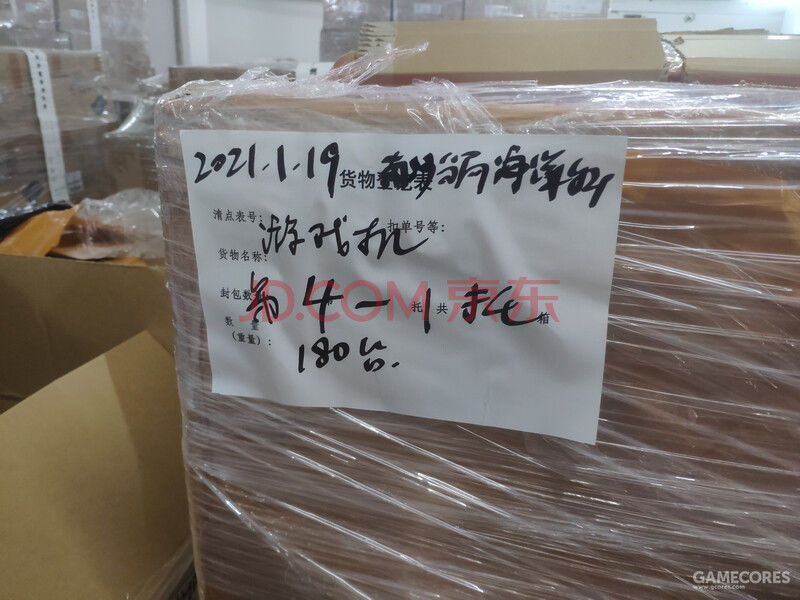 2021.1.19
货物
清点表号:
扣单号等:
游戏机
货物名称:
封包数
第4-1托
托 共 箱
数 量
(重量):
180台.
JD.COM 京东
GAMECORES
www.gcores.com